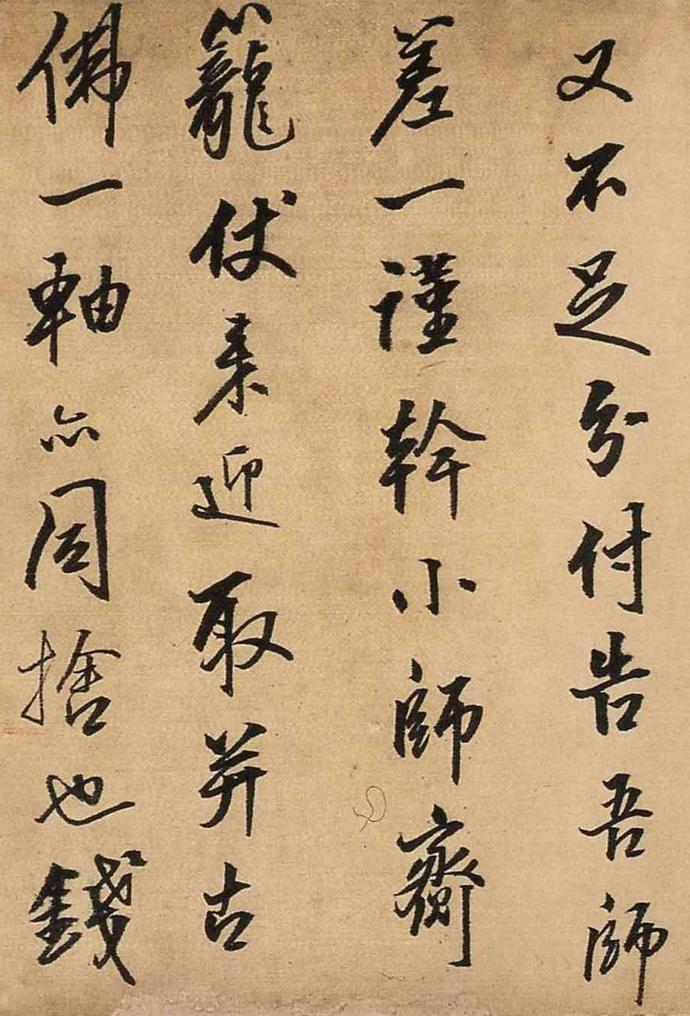 又不足分付告吾師
差一謹幹小師齎
籠仗来迎取并古
佛一軸亦同捨也錢